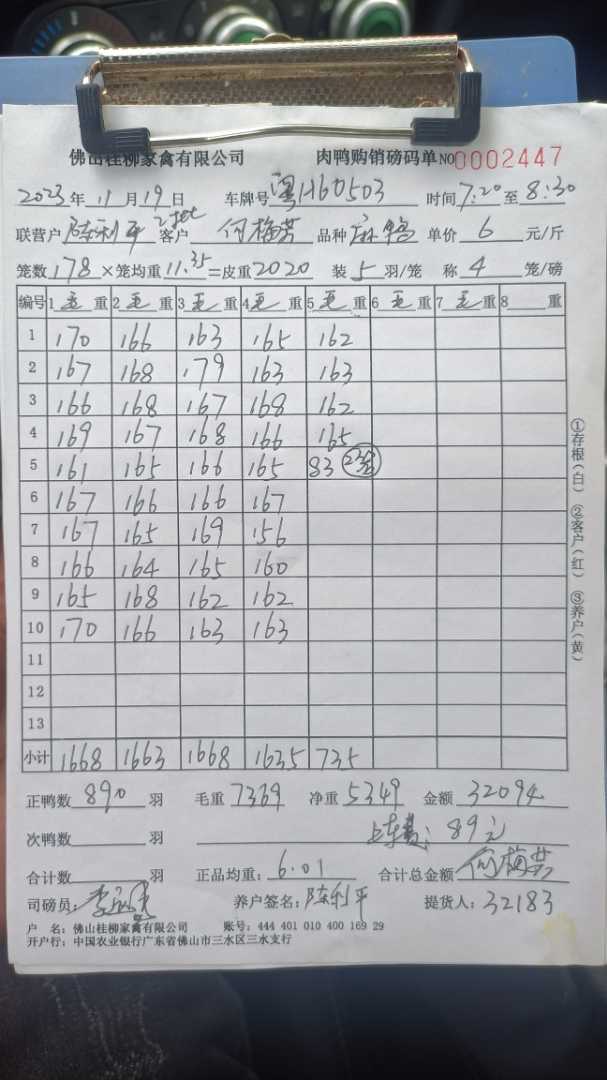 佛山桂柳家禽有限公司 肉鸭购销磅码单 NO 0002447
2023年11月19日 车牌号 粤H60503 时间7:20至8:30
联营户 陈利平 客户 何梅芳 品种 麻鸭 单价 6 元/斤
笼数178×笼均重11.35=皮重2020 装5羽/笼 称4笼/磅
编号 1毛重 2毛重 3毛重 4毛重 5毛重 6毛重 7毛重 8 重
1 170 166 163 165 162
2 167 168 179 163 163
3 166 168 167 168 162
4 169 167 168 166 165
5 161 165 166 165 83 (2笼)
6 167 166 166 167
7 167 165 169 156
8 166 164 165 160
9 165 168 162 162
10 170 166 163 163
11
12
13
小计 1668 1663 1668 1635 735
正鸭数890羽 毛重7369 净重5349 金额32094
次鸭数 羽 上车费:89元
合计数 羽 正品均重:6.01 合计总金额 何梅芳
司磅员: 养户签名:陈利平 提货人:32183
户 名:佛山桂柳家禽有限公司 账号:444 401 010 400 169 29
开户行:中国农业银行广东省佛山市三水区三水支行
①存根(白) ②客户(红) ③养户(黄)